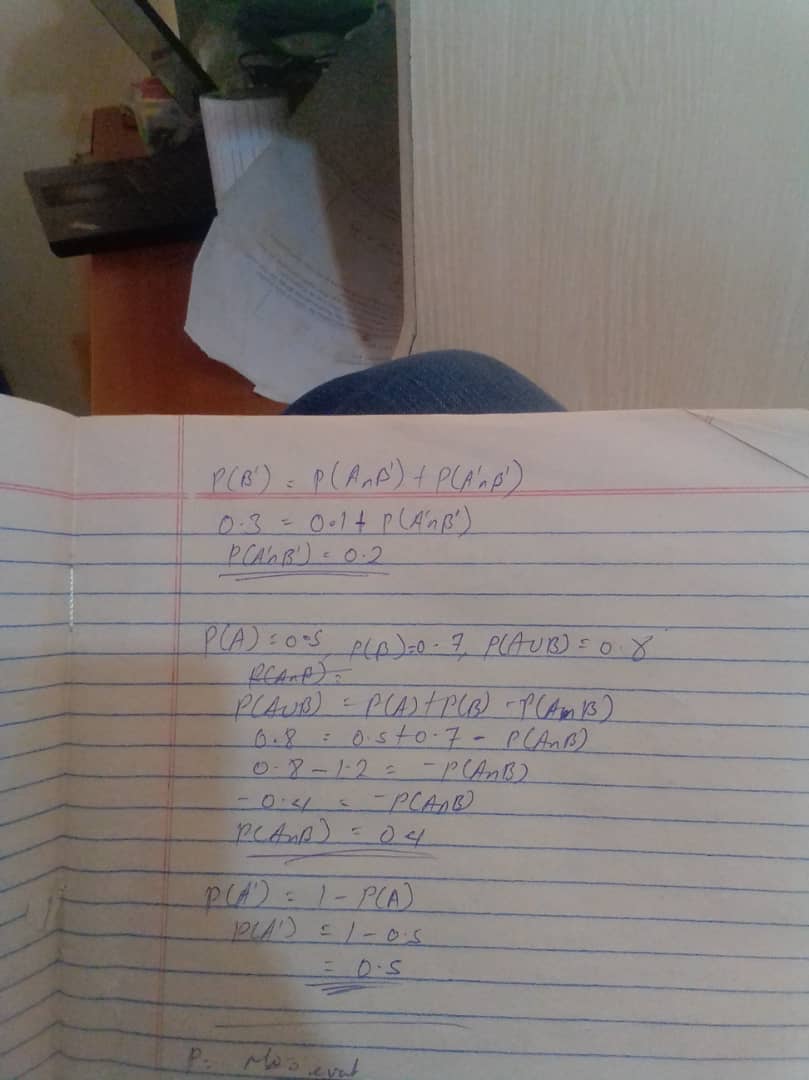 P(B') = P(A∩B') + P(A'∩B')
0.3 = 0.1 + P(A'∩B')
P(A'∩B') = 0.2
P(A) = 0.5, P(B) = 0.7, P(A∪B) = 0.8
P(A∩B) =
P(A∪B) = P(A) + P(B) - P(A∩B)
0.8 = 0.5 + 0.7 - P(A∩B)
0.8 - 1.2 = -P(A∩B)
-0.4 = -P(A∩B)
P(A∩B) = 0.4
P(A') = 1 - P(A)
P(A') = 1 - 0.5
= 0.5